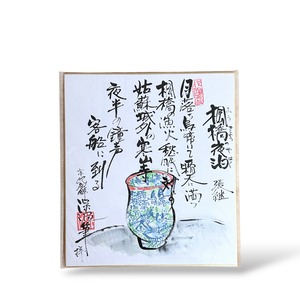 楓橋夜泊
張継
月落烏啼いて霜天に満つ
楓橋の漁火愁眠に対す
姑蘇城外の寒山寺
夜半の鐘声
客船に到る